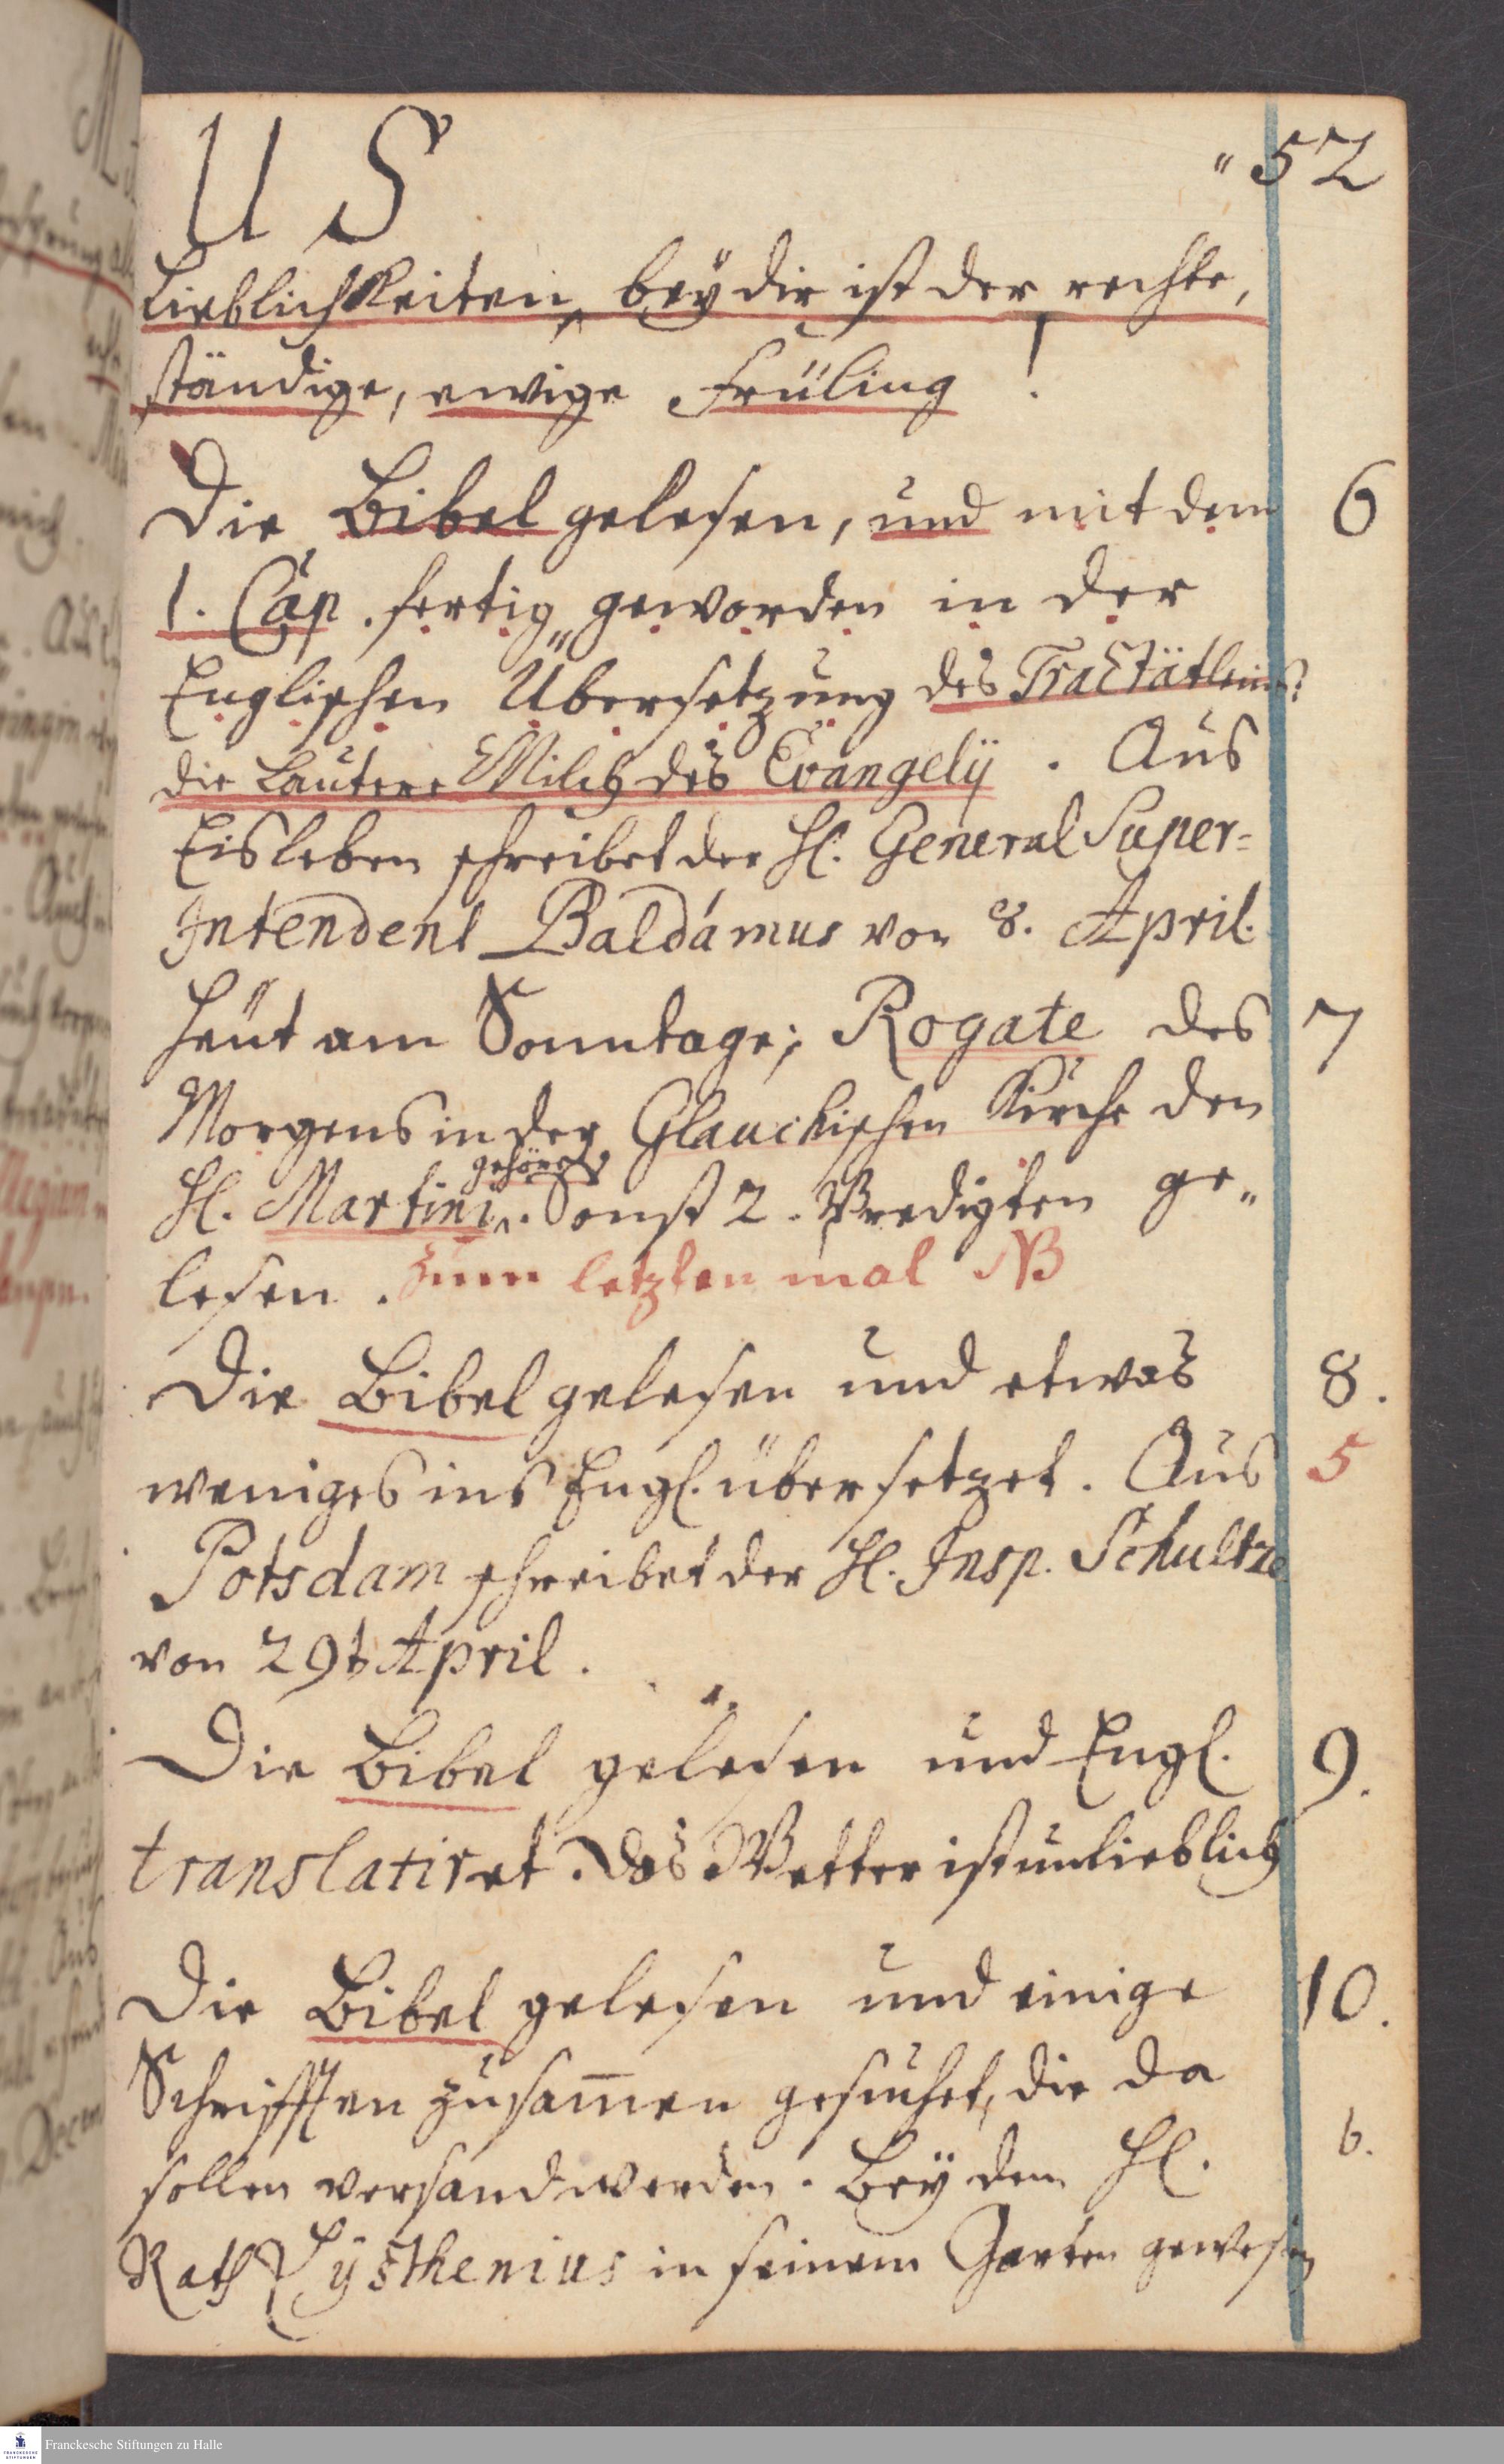 U S " 52
Lieblichkeiten, bey dir ist der rechte,
ständige, ewige Früling !
Die Bibel gelesen, und mit dem 6
1. Cap. fertig geworden in der
Englischen Übersetzung des Tractätleins:
die Lautere Milch des Evangelÿ . Aus
Eisleben schreibet der Hl. General Super=
Intendent Baldamus von 8. April.
Heut am Sonntage; Rogate des 7
Morgens in der Glauchischen Kirche den
Hl. Martini gehöret. Sonst 2. Predigten ge„
lesen . Zum letzten mal NB
Die Bibel gelesen und etwas 8.
weniges ins Engl. übersetzet. Aus 5
Potsdam schreibet der Hl. Insp. Schultze
von 29t April .
Die Bibel gelesen und Engl. 9.
translatiret. Das Wetter ist unlieblich
Die Bibel gelesen und einige 10.
Schrifften zusam̅en gesuchet, die da
sollen versand werden. Bey dem Hl. 6.
Rath Lÿsthenius in seinem Garten gewesen
Franckesche Stiftungen zu Halle